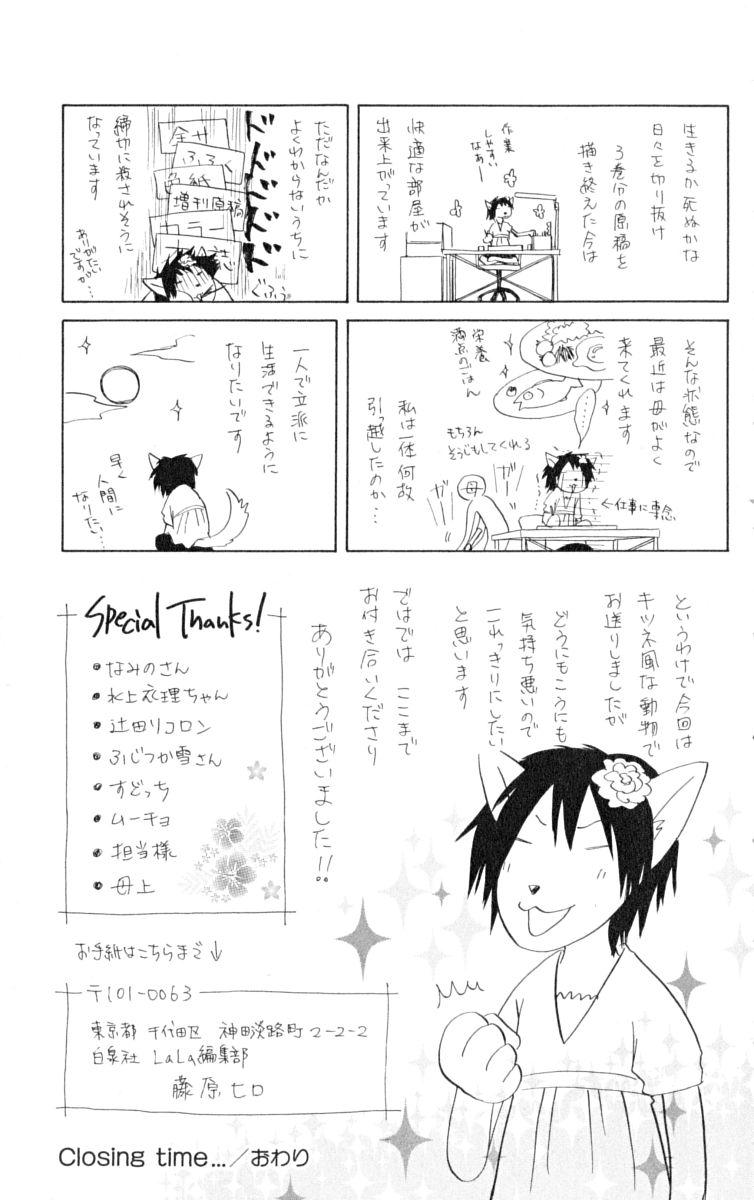 生きるか死ぬかな
日々を切り抜け
3巻分の原稿を
描き終えた今は
快適な部屋が
出来上がっています
作業
しやすい
なぁー
ただなんだか
よくわからないうちに
締切に殺されそうに
なっています
ドドドドド
全サ
ふろく
色紙
増刊原稿
カラー
本誌
ぐふぅ
ありがたい
ですが…
そんな状態なので
最近は母がよく
来てくれます
栄養
満点のごはん
……
←仕事に専念
もちろん
そうじもしてくれる
母
ガー
ガー
私は一体何故
引っ越したのか…
一人で立派に
生活できるように
なりたいです
早く
人間に
なりたい…
というわけで今回は
キツネ風な動物で
お送りしましたが
どうにもこうにも
気持ち悪いので
これっきりにしたい
と思います
ではでは ここまで
お付き合いくださり
ありがとうございました!!
Special Thanks!
● なみのさん
● 水上衣理ちゃん
● 辻田リコロン
● ふじつか雪さん
● すどっち
● ムーチョ
● 担当様
● 母上
お手紙はこちらまで↓
〒101-0063
東京都 千代田区 神田淡路町2-2-2
白泉社 LaLa編集部
藤原ヒロ
Closing time…／おわり